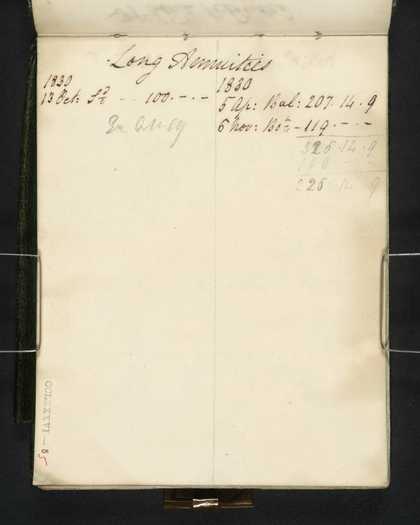 Long Annuities
1830
13 Oct: Sd .. 100. - . -
1830
5 Ap: Bal: 207. 14. 9
6 Nov: Bot - 119. - . -
326. 14. 9
100
226 14 9
CCLXXIVI - 8